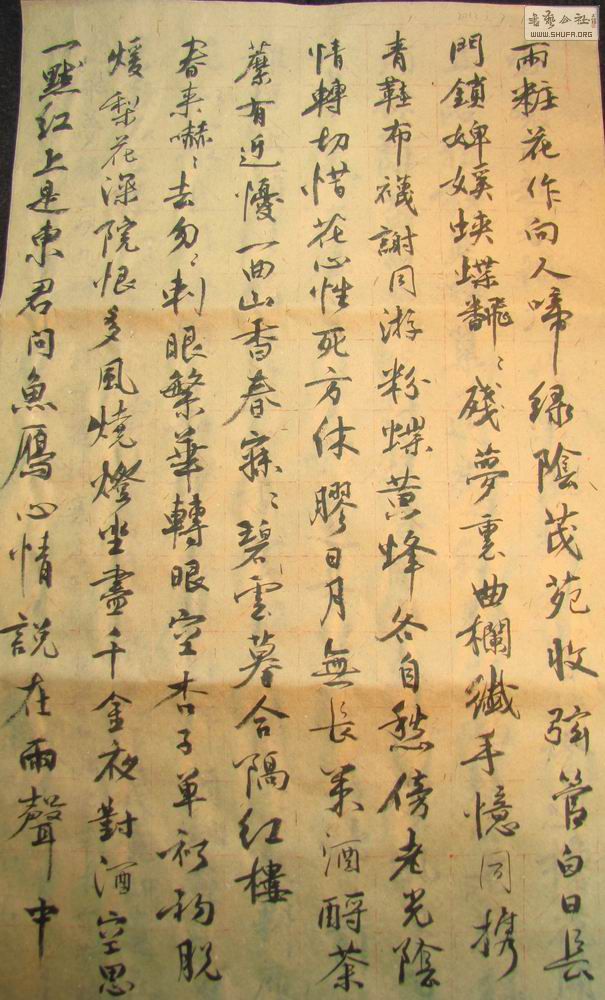 書藝公社
WWW.SHUFA.ORG
雨粧花作向人啼綠陰茂苑收弦管白日長
門鎖婢㜎蛺蝶飜、殘夢裏曲欄纖手憶同攜
青鞋布襪謝同游粉蝶黃蜂各自愁傍老光陰
情轉切惜花心性死方休膠日月無長策酒酹荼
蘼有近懮一曲山香春寂、碧雲暮合隔紅樓
春來嚇、去匆、刺眼繁華轉眼空杏子單衫初脫
煖梨花深院恨多風燒燈坐盡千金夜對酒空思
一點紅上是東君問魚鴈心情說在雨聲中